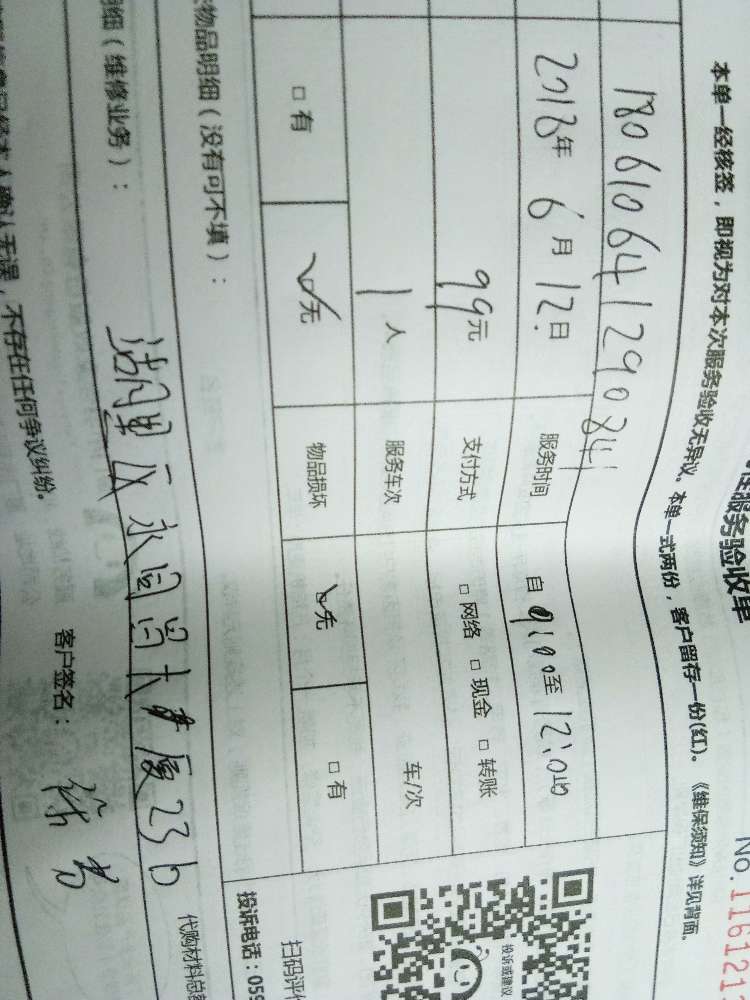 服务验收单
No.116121
本单一经核签，即视为对本次服务验收无异议。本单一式两份，客户留存一份(红)。《维保须知》详见背面。
180610641290841
2018年 6月 12日 服务时间 自 9:00至 12:00
99元 支付方式 □ 网络 □ 现金 □ 转账
1 人 服务车次 车/次
□ 有 无 物品损坏 无 □ 有
投诉或建议
扫码评
物品明细（没有可不填）：
投诉电话：059
细（维修业务）：
湖里区永同昌大厦23b
代购材料总
客户签名：
确认无误，不存在任何争议纠纷。